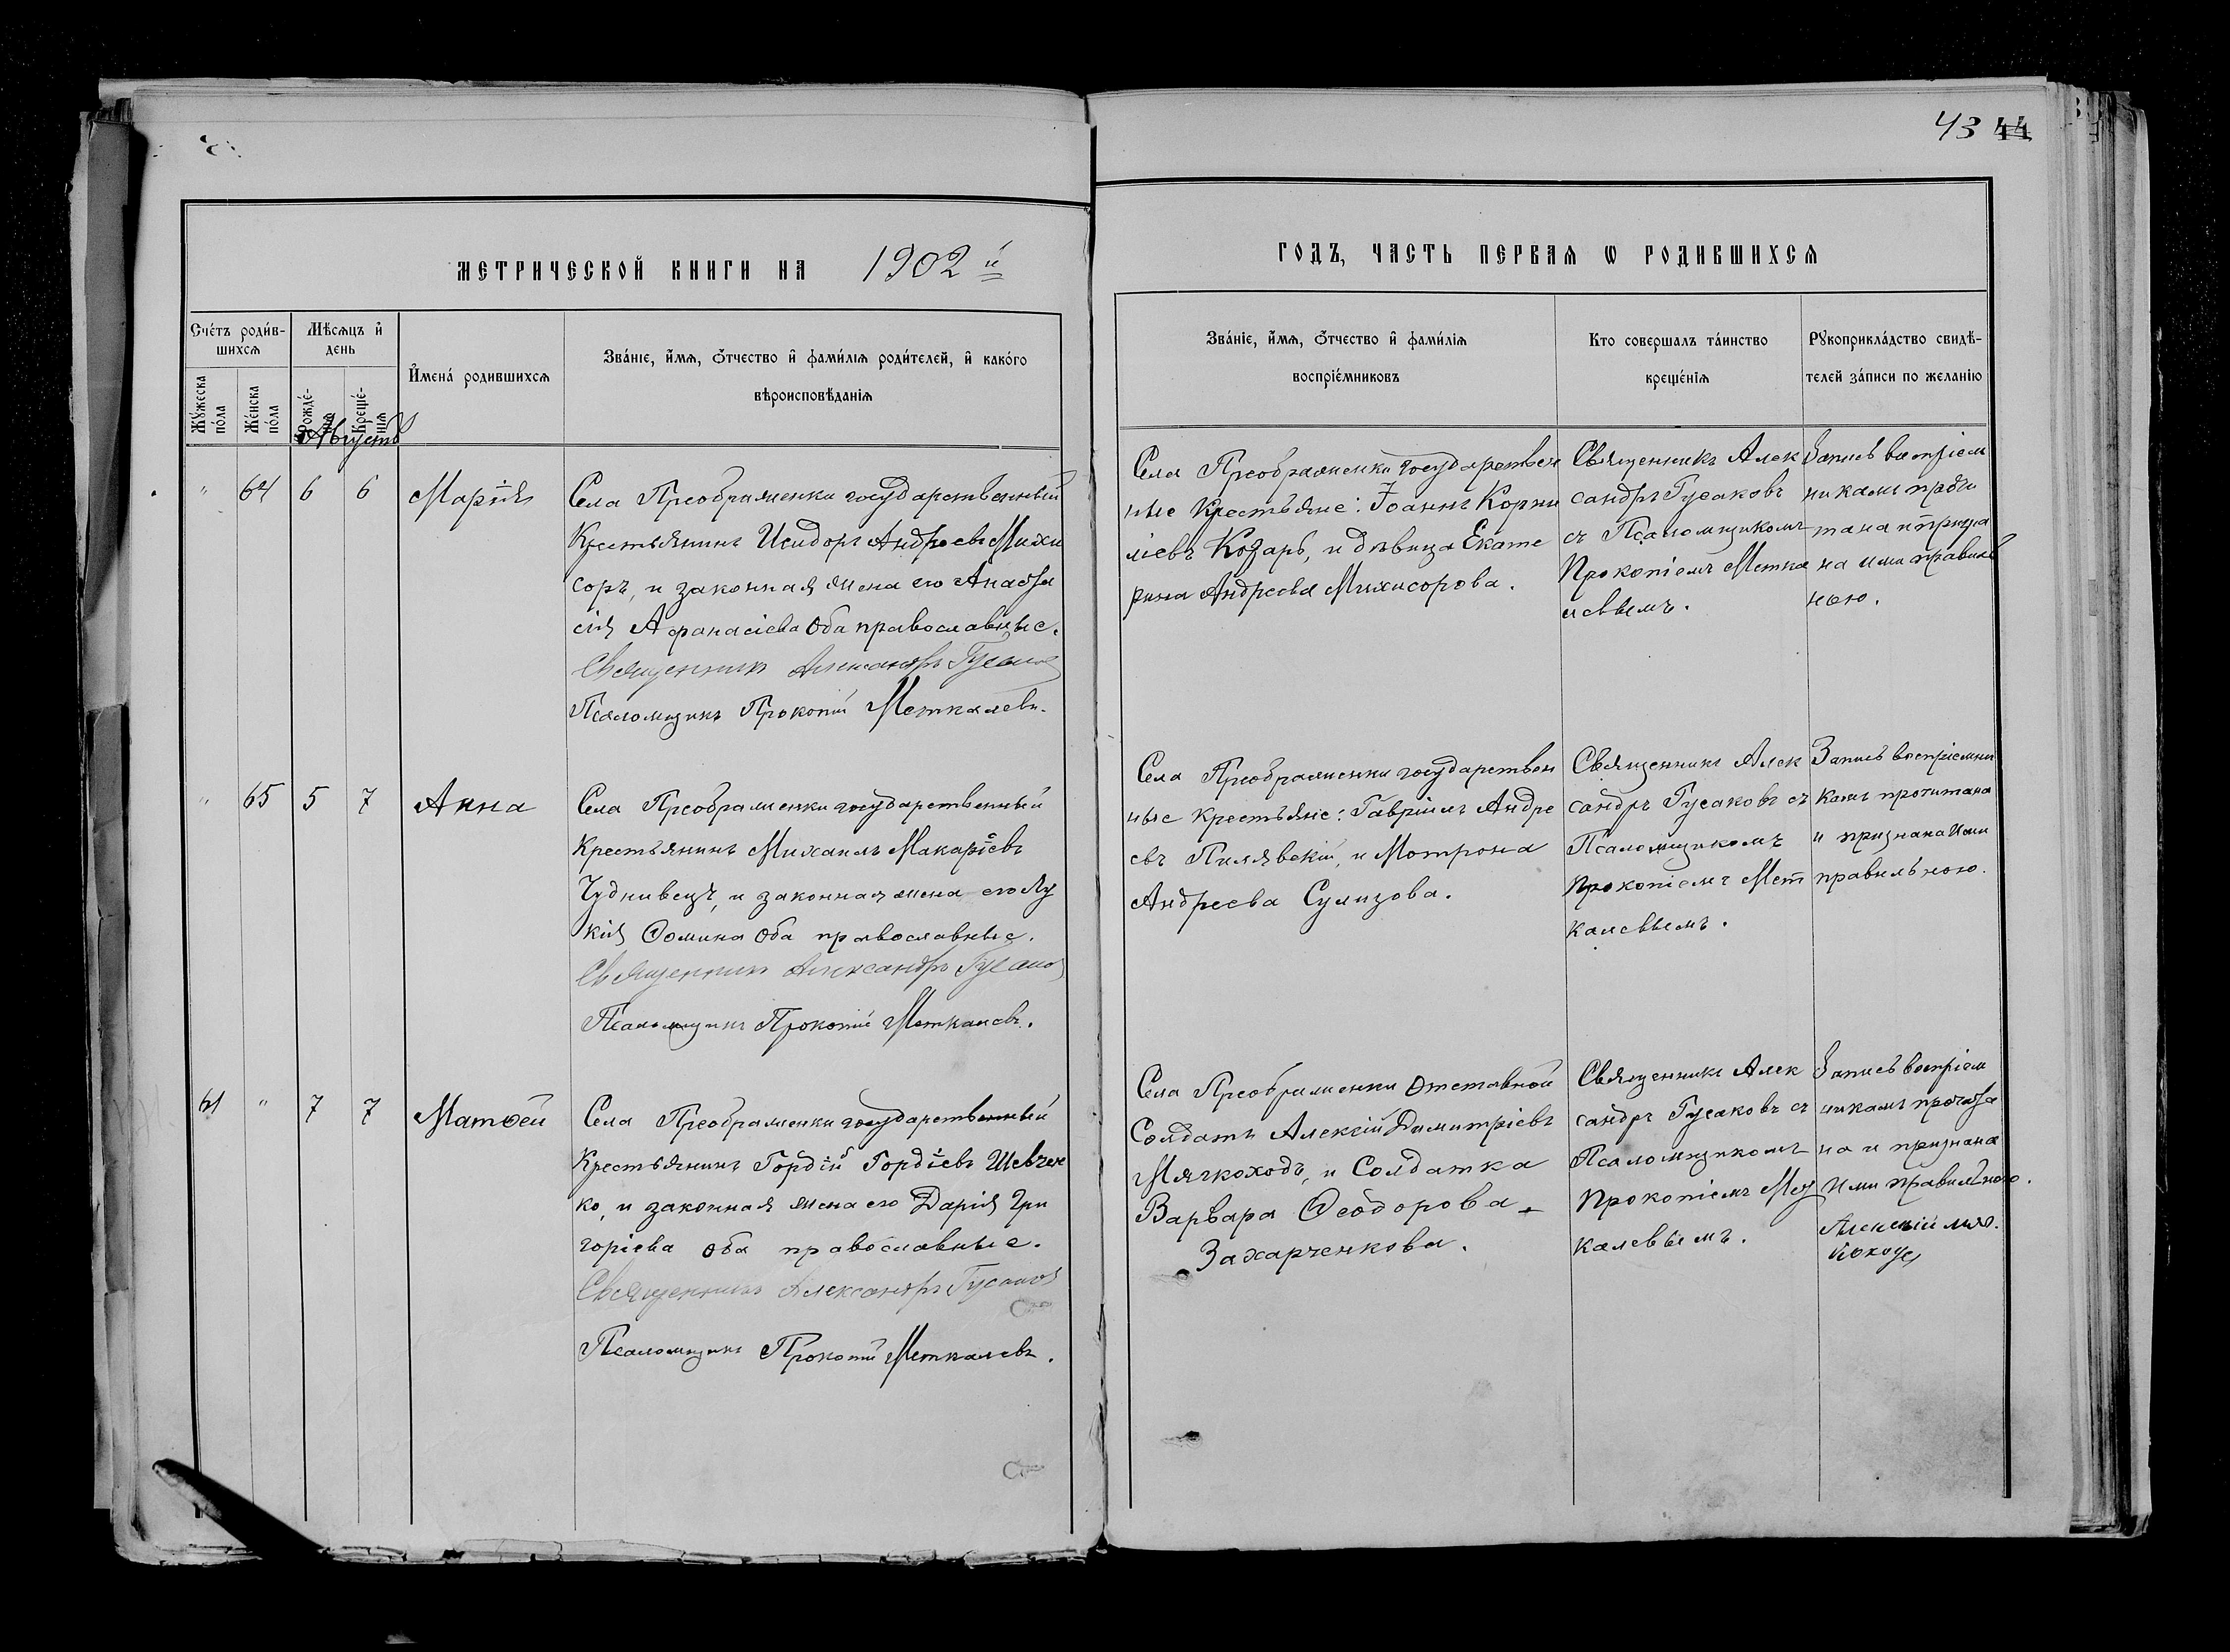 43 44
МЕТРИЧЕСКОЙ КНИГИ НА 1902 й
ГОДЪ, ЧАСТЬ ПЕРВАѦ Ѡ РОДИВШИХСѦ
Счетъ родив-
шихсѧ
Мужеска
пола
Женска
пола
Мѣсѧцъ и
день
Рожде-
нїѧ
Креще-
нїѧ
Августъ
Имена родившихсѧ
Званїе, имѧ, ѻтчество и фамилїѧ родителей, и какого
вѣроисповѣданїѧ
Званїе, имѧ, ѻтчество и фамилїѧ
воспрїемниковъ
Кто совершалъ таинство
крещенїѧ
Рꙋкоприкладство свидѣ-
телей записи по желанїю
" 64 6 6 Марія
Села Преображенки государственный
Крестьянинъ Исидоръ Андреевъ Михи
соръ, и законная жена его Анаста
сія Афанасіева Оба православные.
Священникъ Александръ Гусаковъ
Псаломщикъ Прокопій Меткалевъ.
Села Преображенки государствен
ные Крестьяне: Іоаннъ Корни
ліевъ Козарь, и дѣвица Екате
рина Андреева Михисорова.
Священникъ Алек
сандръ Гусаковъ
съ Псаломщикомъ
Прокопіемъ Метка
левымъ.
Запись воспріем
никамъ прочи
тана и призна
на ими правиль
ною.
" 65 5 7 Анна
Села Преображенки государственный
Крестьянинъ Михаилъ Макаріевъ
Чуднивецъ, и законная жена его Лу
кія Ѳомина Оба православные.
Священникъ Александръ Гусаковъ
Псаломщикъ Прокопій Меткалевъ.
Села Преображенки государствен
ные Крестьяне: Гавріилъ Андре
евъ Пилявскій, и Мотрона
Андреева Сулизова.
Священникъ Алек
сандръ Гусаковъ съ
Псаломщикомъ
Прокопіемъ Мет
калевымъ.
Запись воспріемни
камъ прочитана
и признана Ими
правильною.
61 " 7 7 Матѳей
Села Преображенки государственный
Крестьянинъ Гордій Гордіевъ Шевчен
ко, и законная жена его Дарія Гри
горіева оба православные.
Священникъ Александръ Гусаковъ
Псаломщикъ Прокопій Меткалевъ.
Села Преображенки Отставной
Солдатъ Алексій Димитріевъ
Мягкоходъ, и Солдатка
Варвара Ѳеодорова
Захарченкова.
Священникъ Алек
сандръ Гусаковъ съ
Псаломщикомъ
Прокопіемъ Мет
калевымъ.
Запись воспріем
никамъ прочита
на и признана
Ими правильною.
Алексій